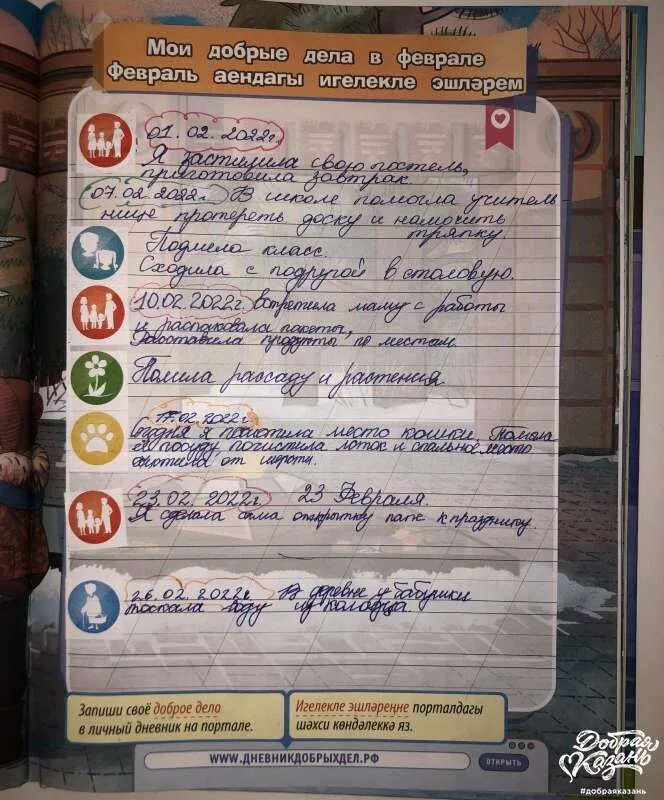 Мои добрые дела в феврале
Февраль аендагы игелекле эшләрем
01.02.2022г.
Я застилила свою постель,
приготовила завтрак.
07.02.2022г. В школе помогла учитель-
нице протереть доску и намочить
тряпку
Подмела класс.
Сходила с подругой в столовую.
10.02.2022г встретила маму с работы
и распаковала пакеты,
Расставила продукты по местам
Полила рассаду и растения
17.02.2022г
Сегодня я почистила место кошки. Помыла
её посуду, почистила лоток и спальное место
от шерсти.
23.02.2022г 23 Февраля.
Я сделала сама открытку папе к празднику.
26.02.2022г. В деревне у бабушки
таскала воду из колодца.
Запиши своё доброе дело
в личный дневник на портале.
Игелекле эшләреңне порталдагы
шәхси көндәлеккә яз.
WWW.ДНЕВНИКДОБРЫХДЕЛ.РФ
ОТКРЫТЬ
Добрая
Казань
#добраяказань